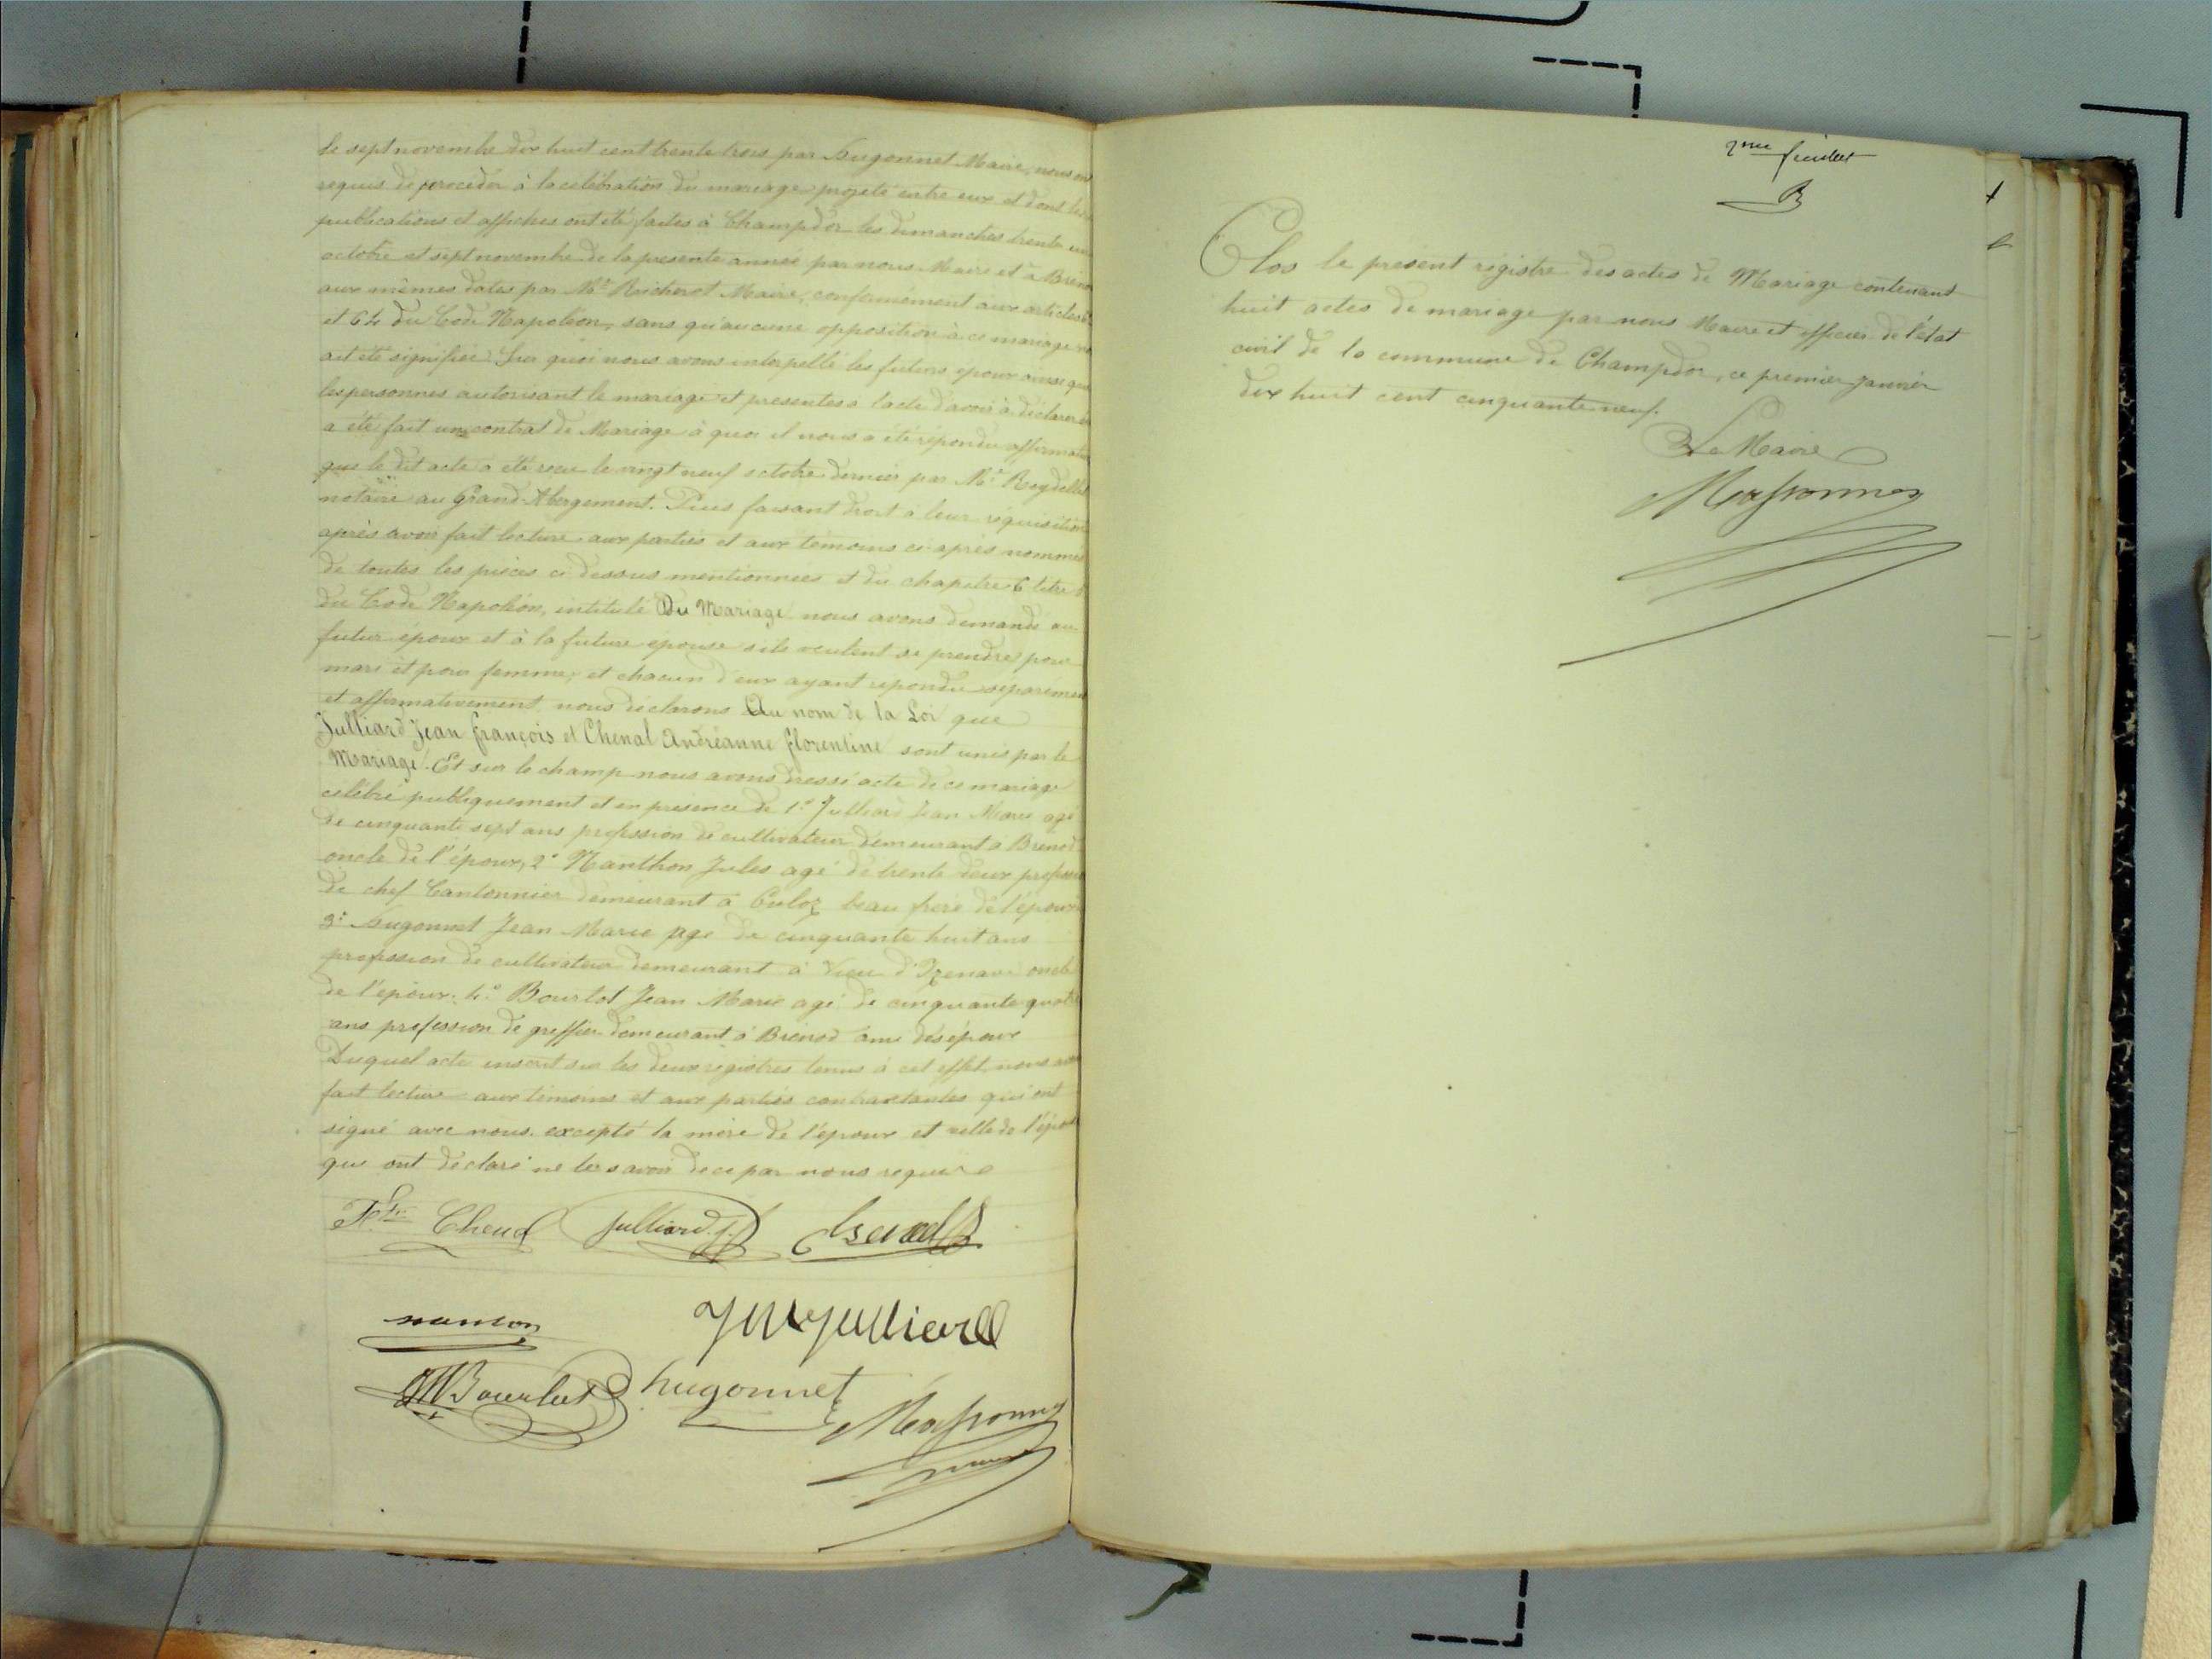 le sept novembre dix huit cent trente trois par hugonnet Maire, nous ont
requis de proceder à la celebration du mariage projeté entre eux et dont les
publications et affiches ont été faites à Champdor les dimanches trente un
octobre et sept novembre de la presente année par nous Maire et à Brenod
aux mêmes dates par Mr Maire, conformément aux articles
et 64 du Code Napoléon, sans qu'aucune opposition à ce mariage
ait été signifiée Sur quoi nous avons interpellé les futurs époux ainsi que
les personnes autorisant le mariage et presentes a l'acte d'avoir à déclarer
a été fait un contrat de Mariage à quoi il nous a été répondu
que le dit acte a été recu le vingt neuf octobre dernier par Me Reydellet
notaire au Grand-Abergement. Puis faisant droit à leur réquisition
après avoir fait lecture aux parties et aux témoins ci-après nommés
de toutes les pièces ci dessus mentionnées et du chapitre 6 titre
du Code Napoléon, intitulé Du Mariage nous avons demandé au
futur époux et à la future epouse s'ils veulent se prendre pour
mari et pour femme, et chacun d'eux ayant repondu séparément
et affirmativement nous déclarons Au nom de la Loi que
Julliard Jean françois et Chenal Andréanne florentine sont unis par le
Mariage. Et sur le champ nous avons dressé acte de ce mariage
célébré publiquement et en présence de 1° Julliard Jean Marie agé
de cinquante sept ans profession de cultivateur demeurant à Brenod
oncle de l'époux, 2° Nanthon Jules agé de trente deux
de chef Cantonnier demeurant à Culoz beau frère de l'époux
3° hugonnet Jean Marie agé de cinquante huit ans
profession de cultivateur demeurant à Vieu d'Izenave oncle
de l'époux. 4° Bourlot Jean Marie agé de cinquante quatre
ans profession de greffier demeurant à Brénod ami des époux
Duquel acte inscrit sur les deux régistres tenus à cet effet nous
fait lecture aux témoins et aux parties contractantes qui ont
signé avec nous. excepté la mère de l'époux et celle de
qui ont déclaré ne le savoir de ce par nous requise
Chenal Julliard. j.
nanton JM Julliard
JM Bourlot hugonnet
2me feuillet
Clos le présent régistre des actes de Mariage contenant
huit actes de mariage par nous Maire et officier de l'état
civil de la commune de Champdor, ce premier janvier
dix huit cent cinquante neuf.
Le Maire